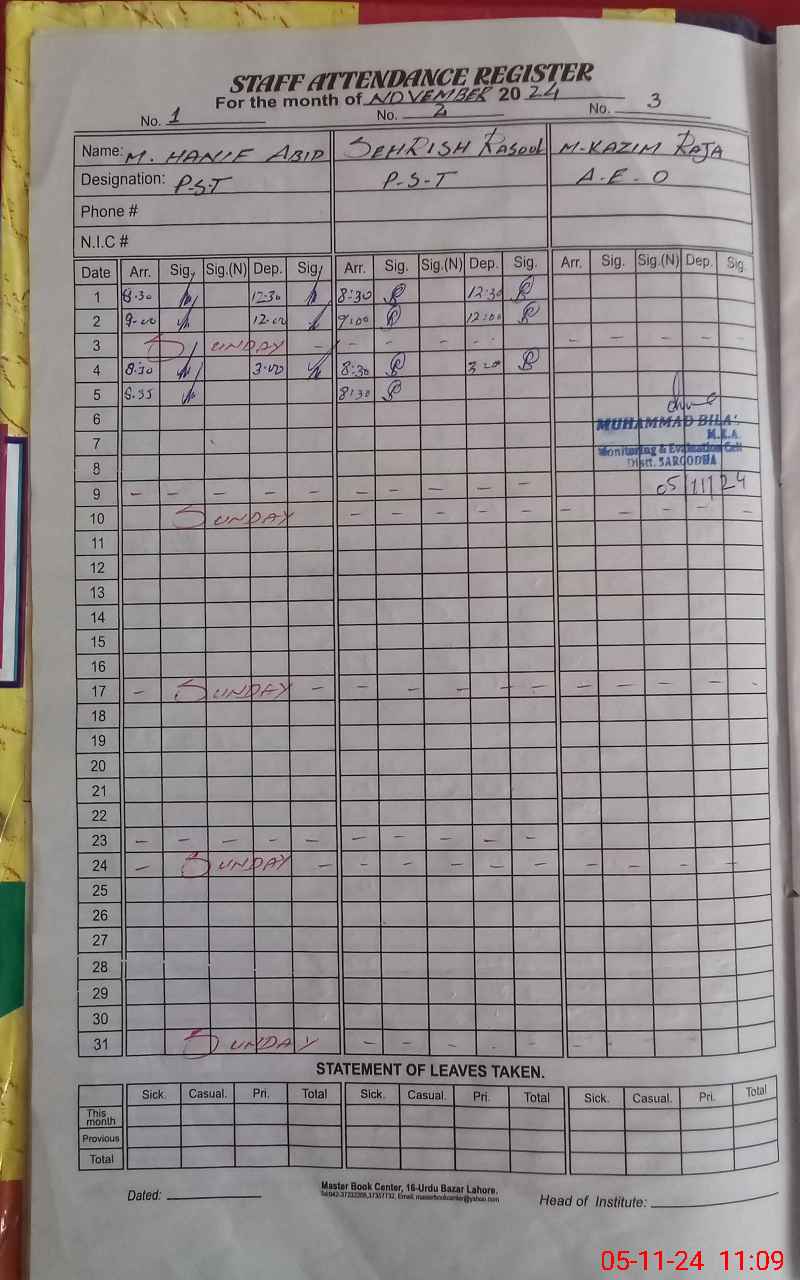 STAFF ATTENDANCE REGISTER
For the month of NOVEMBER 2024
No. 1 No. 2 No. 3
Name: M. HANIF ABID SEHRISH Rasool M-KAZIM RAJA
Designation: P.S.T P-S-T A-E-O
Phone #
N.I.C #
Date Arr. Sig. Sig.(N) Dep. Sig. Arr. Sig. Sig.(N) Dep. Sig. Arr. Sig. Sig.(N) Dep. Sig.
1 8.30 12.30 8:30 12:30
2 9.00 12.00 9:00 12:00
3 SUNDAY - - - - - - - - - - -
4 8:30 3.00 8:30 3.00
5 8.35 8:30
6
MUHAMMAD BILAL
7 M.E.A
Monitoring & Evaluation Cell
8 Distt. SARGODHA
9 - - - - - - - - - - 05/11/24
10 SUNDAY - - - - - - - - - -
11
12
13
14
15
16
17 - SUNDAY - - - - - - - - - - -
18
19
20
21
22
23 - - - - - - - - - -
24 - SUNDAY - - - - - - - - - - -
25
26
27
28
29
30
31 SUNDAY - - - - - - - - - -
STATEMENT OF LEAVES TAKEN.
Sick. Casual. Pri. Total Sick. Casual. Pri. Total Sick. Casual. Pri. Total
This month
Provious
Total
Dated:
Master Book Center, 16-Urdu Bazar Lahore.
Head of Institute:
05-11-24 11:09